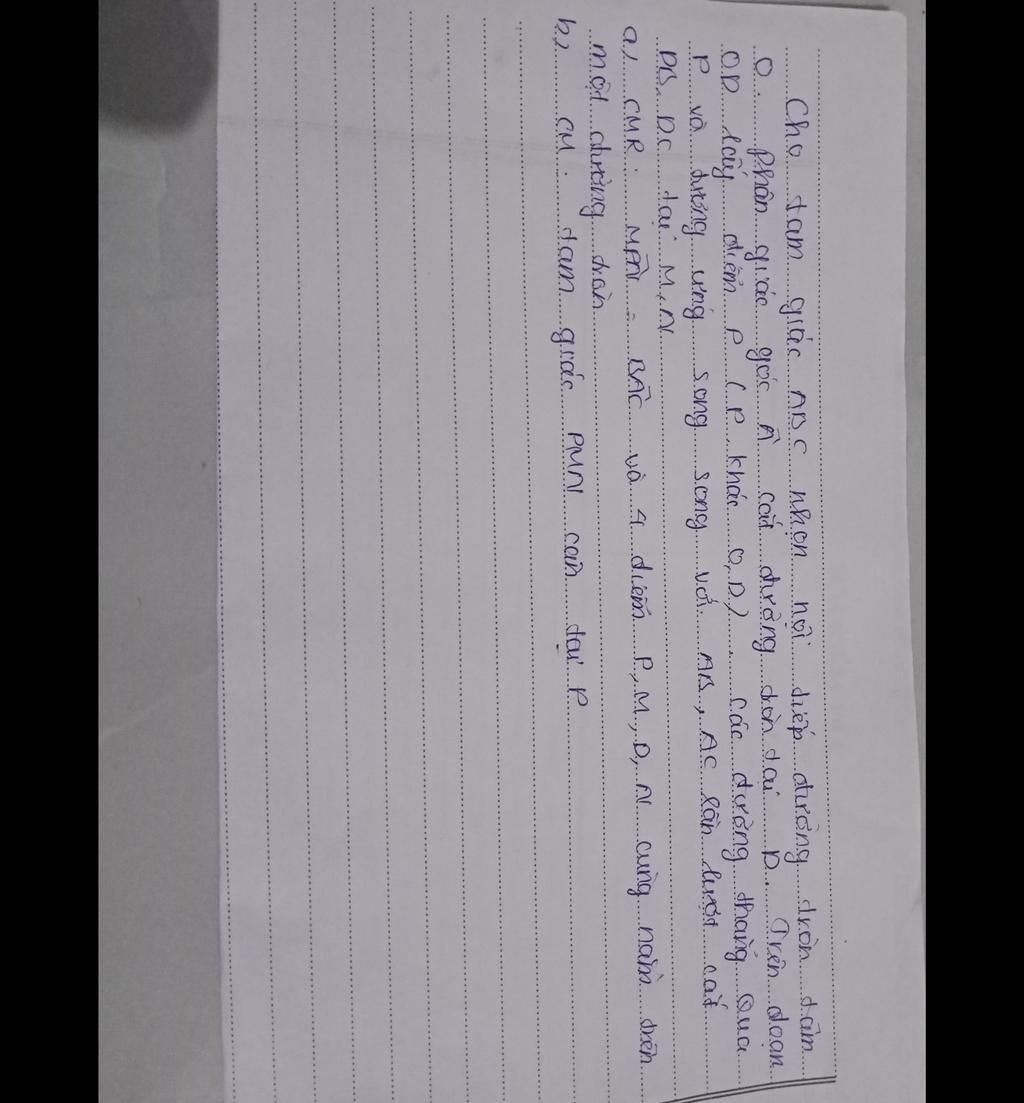 Cho tam giác ABC nhọn nội tiếp đường tròn tâm
O. Phân giác góc Â cắt đường tròn tại D. Trên đoạn
OD lấy điểm P (P khác O, D). Các đường thẳng qua
P và tương ứng song song với AB, AC lần lượt cắt
DB, DC tại M, N
a, CMR: MP̂N = BÂC và 4 điểm P, M, D, N cùng nằm trên
một đường tròn
b, CM: tam giác PMN cân tại P